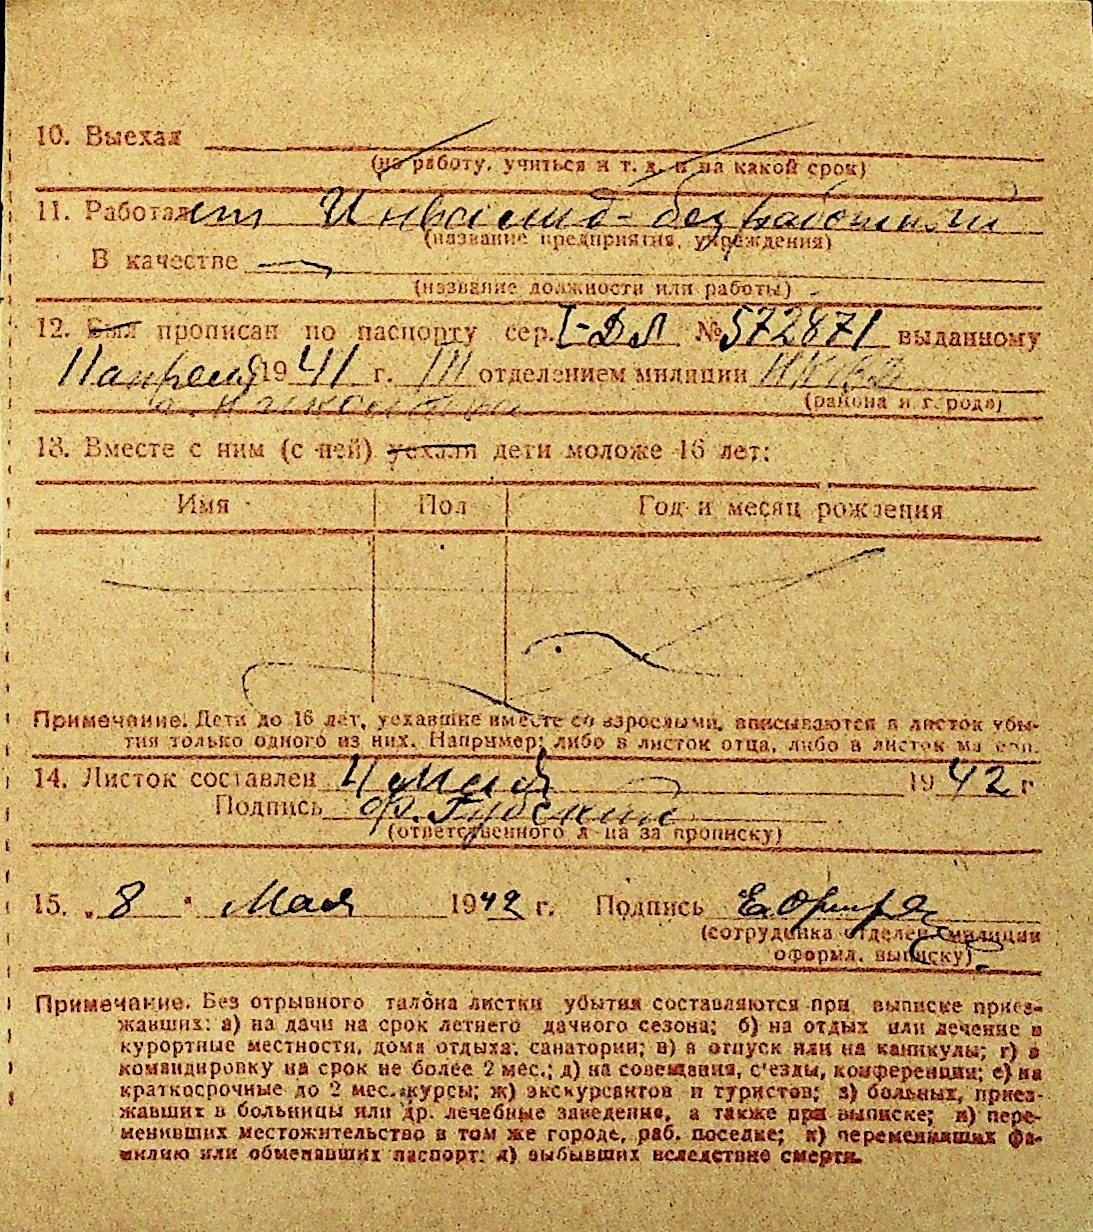 10. Выехал
(на работу, учиться и т. д. и на какой срок)
11. Работает Инвалид - безработный
(название предприятия, учреждения)
В качестве
(название должности или работы)
12. Был прописан по паспорту сер. I-ДЛ № 572871 выданному
11 апреля 1941 г. III отделением милиции НКВД
(района и города)
13. Вместе с ним (с ней) уехали дети моложе 16 лет:
Имя Пол Год и месяц рождения
Примечание. Дети до 16 лет, уехавшие вместе со взрослыми, вписываются в листок убы-
тия только одного из них. Например: либо в листок отца, либо в листок матери.
14. Листок составлен 4 мая 1942 г
Подпись
(ответственного лица за прописку)
15. „8" Мая 1942 г. Подпись
(сотрудника отделен. милиции
оформл. выписку)
Примечание. Без отрывного талона листки убытия составляются при выписке приез-
жавших: а) на дачи на срок летнего дачного сезона; б) на отдых или лечение в
курортные местности, дома отдыха, санатории; в) в отпуск или на каникулы; г) в
командировку на срок не более 2 мес.; д) на совещания, с'езды, конференции; е) на
краткосрочные до 2 мес. курсы; ж) экскурсантов и туристов; з) больных, приез-
жавших в больницы или др. лечебные заведения, а также при выписке; и) пере-
менивших местожительство в том же городе, раб. поселке; к) переменивших фа-
милию или обменавших паспорт; л) выбывших вследствие смерти.